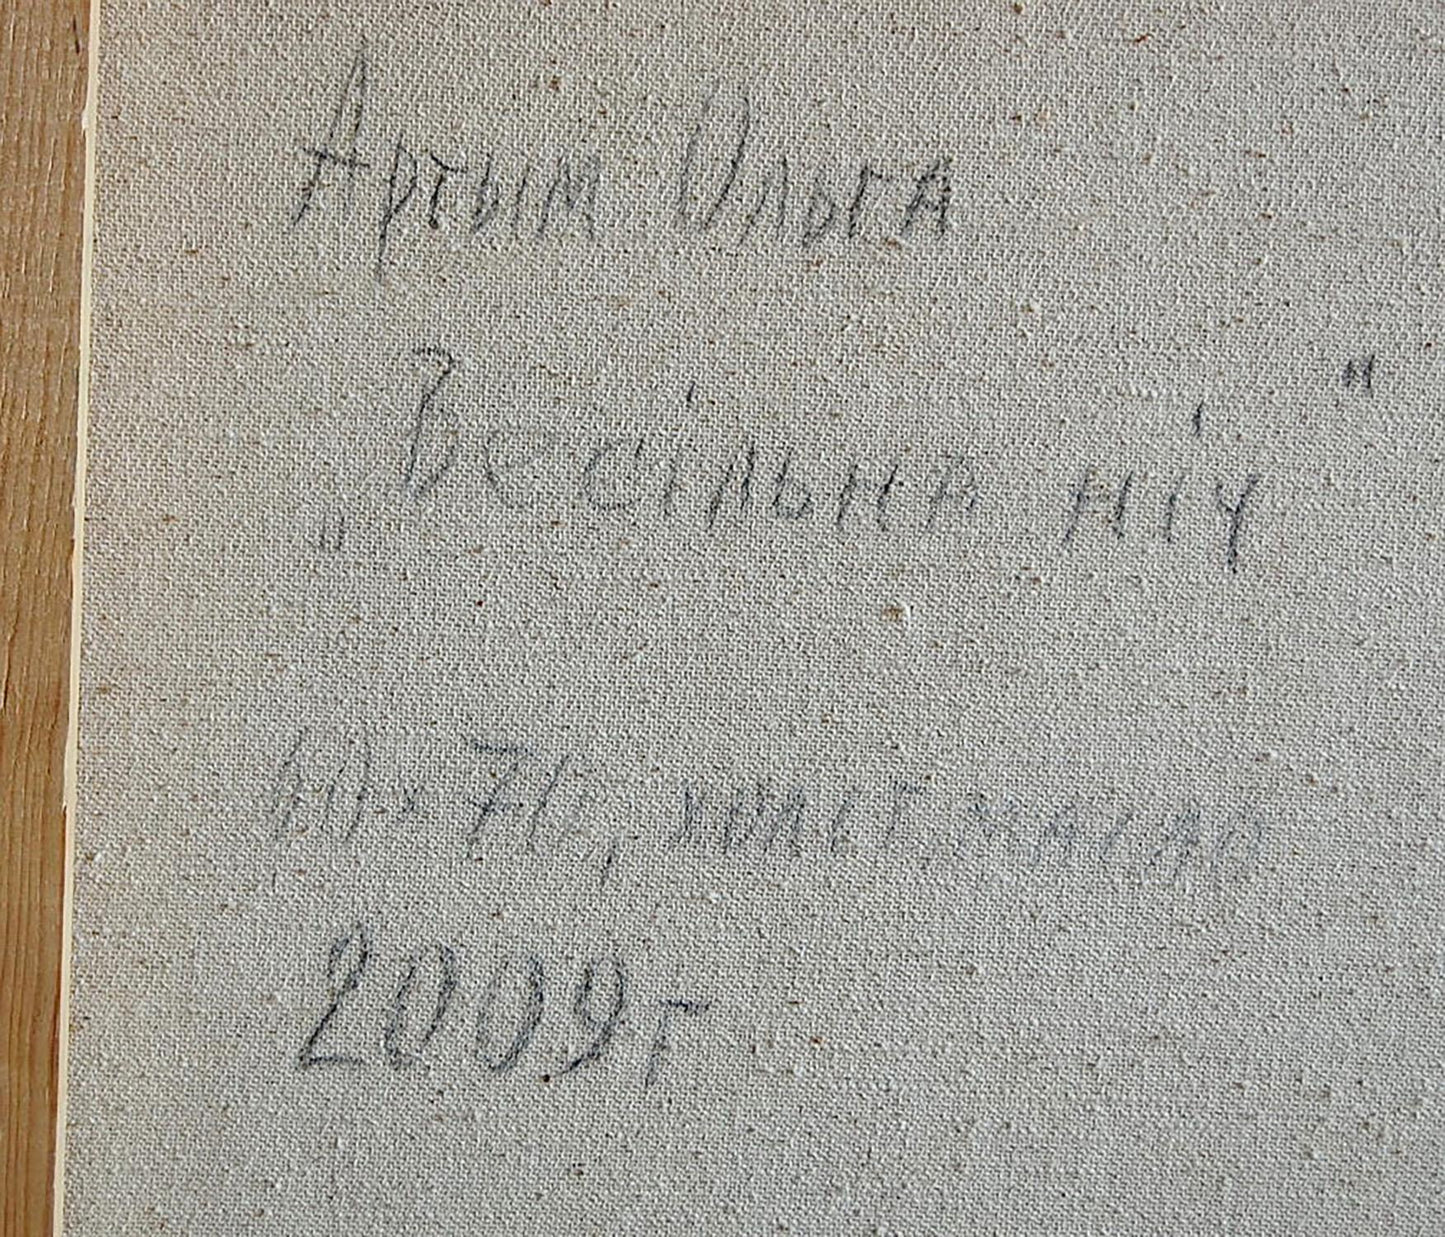 Артым Ольга
„Весільна ніч"
60 × 70, холст, масло
2009г